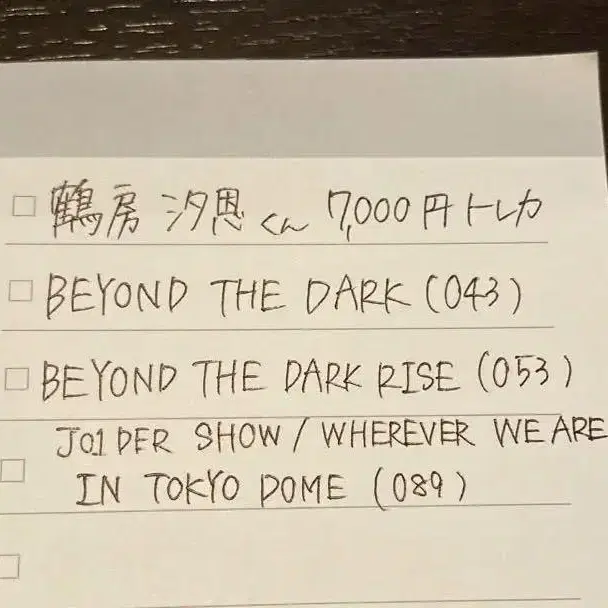 鶴房 汐恩 くん 7,000円 トレカ
BEYOND THE DARK (043)
BEYOND THE DARK RISE (053)
JO1DER SHOW / WHEREVER WE ARE
IN TOKYO DOME (089)